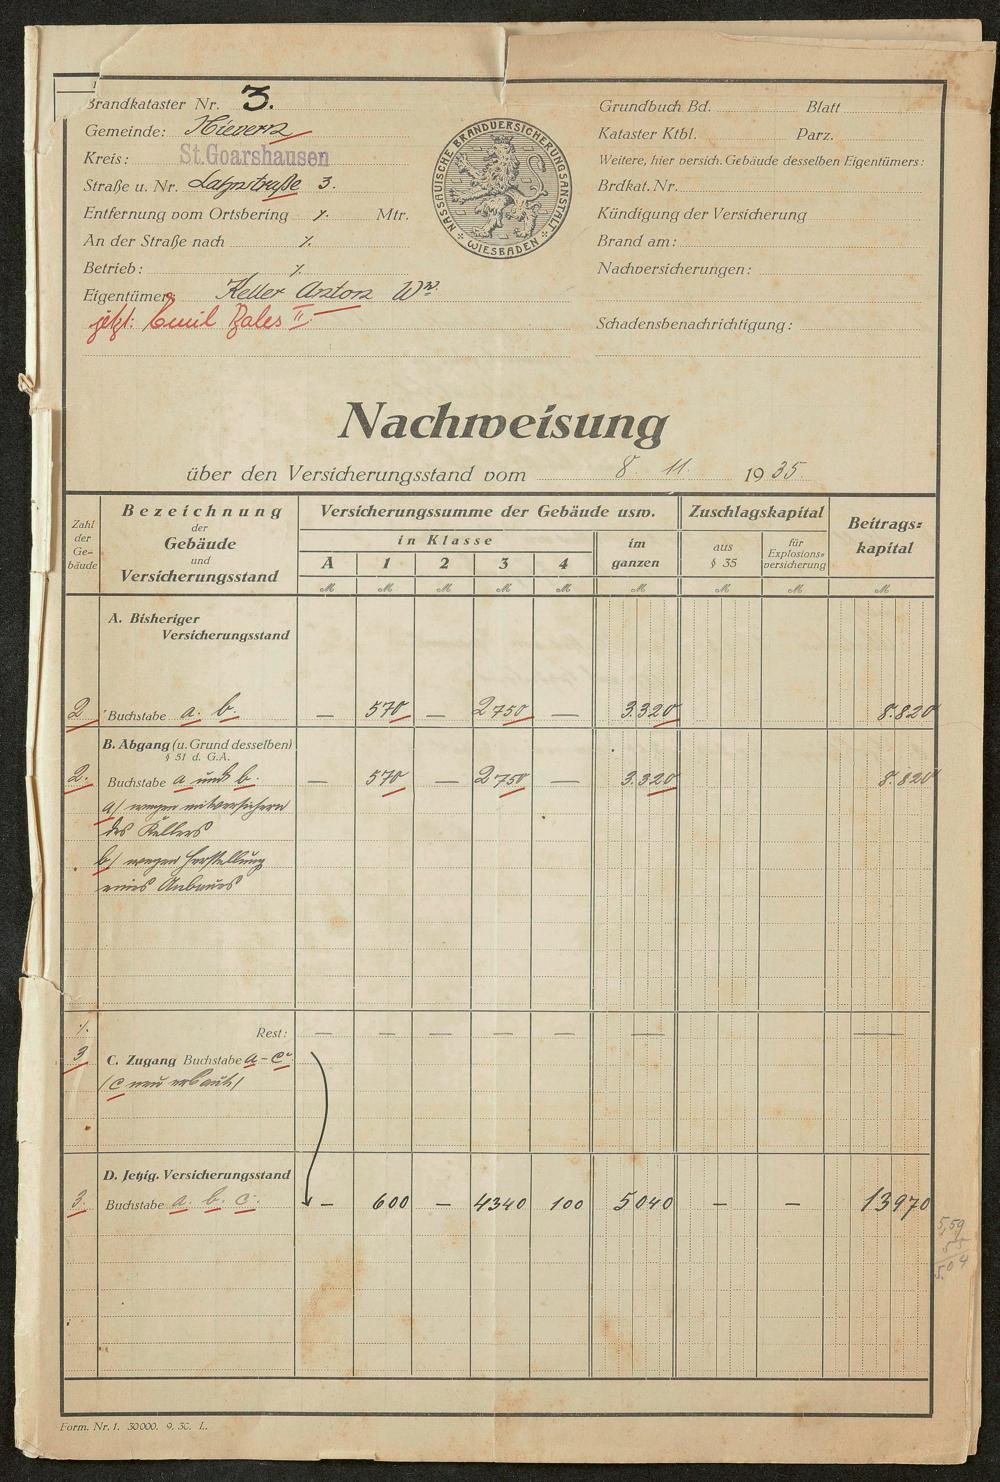 Brandkataster Nr. 3.
Gemeinde: Nievern
Kreis: St. Goarshausen
Straße u. Nr. Lahnstraße 3.
Entfernung vom Ortsbering ./. Mtr.
An der Straße nach ./.
Betrieb: ./.
Eigentümer: Keller Anton Ww.
jetzt: Emil Bales II
NASSAUISCHE BRANDVERSICHERUNGSANSTALT
WIESBADEN
Grundbuch Bd. Blatt
Kataster Ktbl. Parz.
Weitere, hier versich. Gebäude desselben Eigentümers:
Brdkat. Nr.
Kündigung der Versicherung
Brand am:
Nachversicherungen:
Schadensbenachrichtigung:
Nachweisung
über den Versicherungsstand vom 8. 11. 1935.
Zahl der Ge-bäude
Bezeichnung der Gebäude und Versicherungsstand
Versicherungssumme der Gebäude usw.
in Klasse
A 1 2 3 4
im ganzen
Zuschlagskapital
aus § 35
für Explosions-versicherung
Beitrags-kapital
M M M M M M M M M
A. Bisheriger
Versicherungsstand
2 Buchstabe a. b. — 570 — 2750 — 3.320 8.820
B. Abgang (u. Grund desselben)
§ 51 d. G.A.
2. Buchstabe a und b. — 570 — 2750 — 3.320 8.820
a/ wegen mitversichern
des Kellers
b/ wegen Herstellung
eines Anbaues
./. Rest: — — — — — — —
3 C. Zugang Buchstabe a - c.
(c neu erbaut)
D. Jetzig. Versicherungsstand
3. Buchstabe a. b. c. — 600 — 4340 100 5040 — — 13970
5,59
55
5.04
Form. Nr. 1. 30000. 9. 30. L.